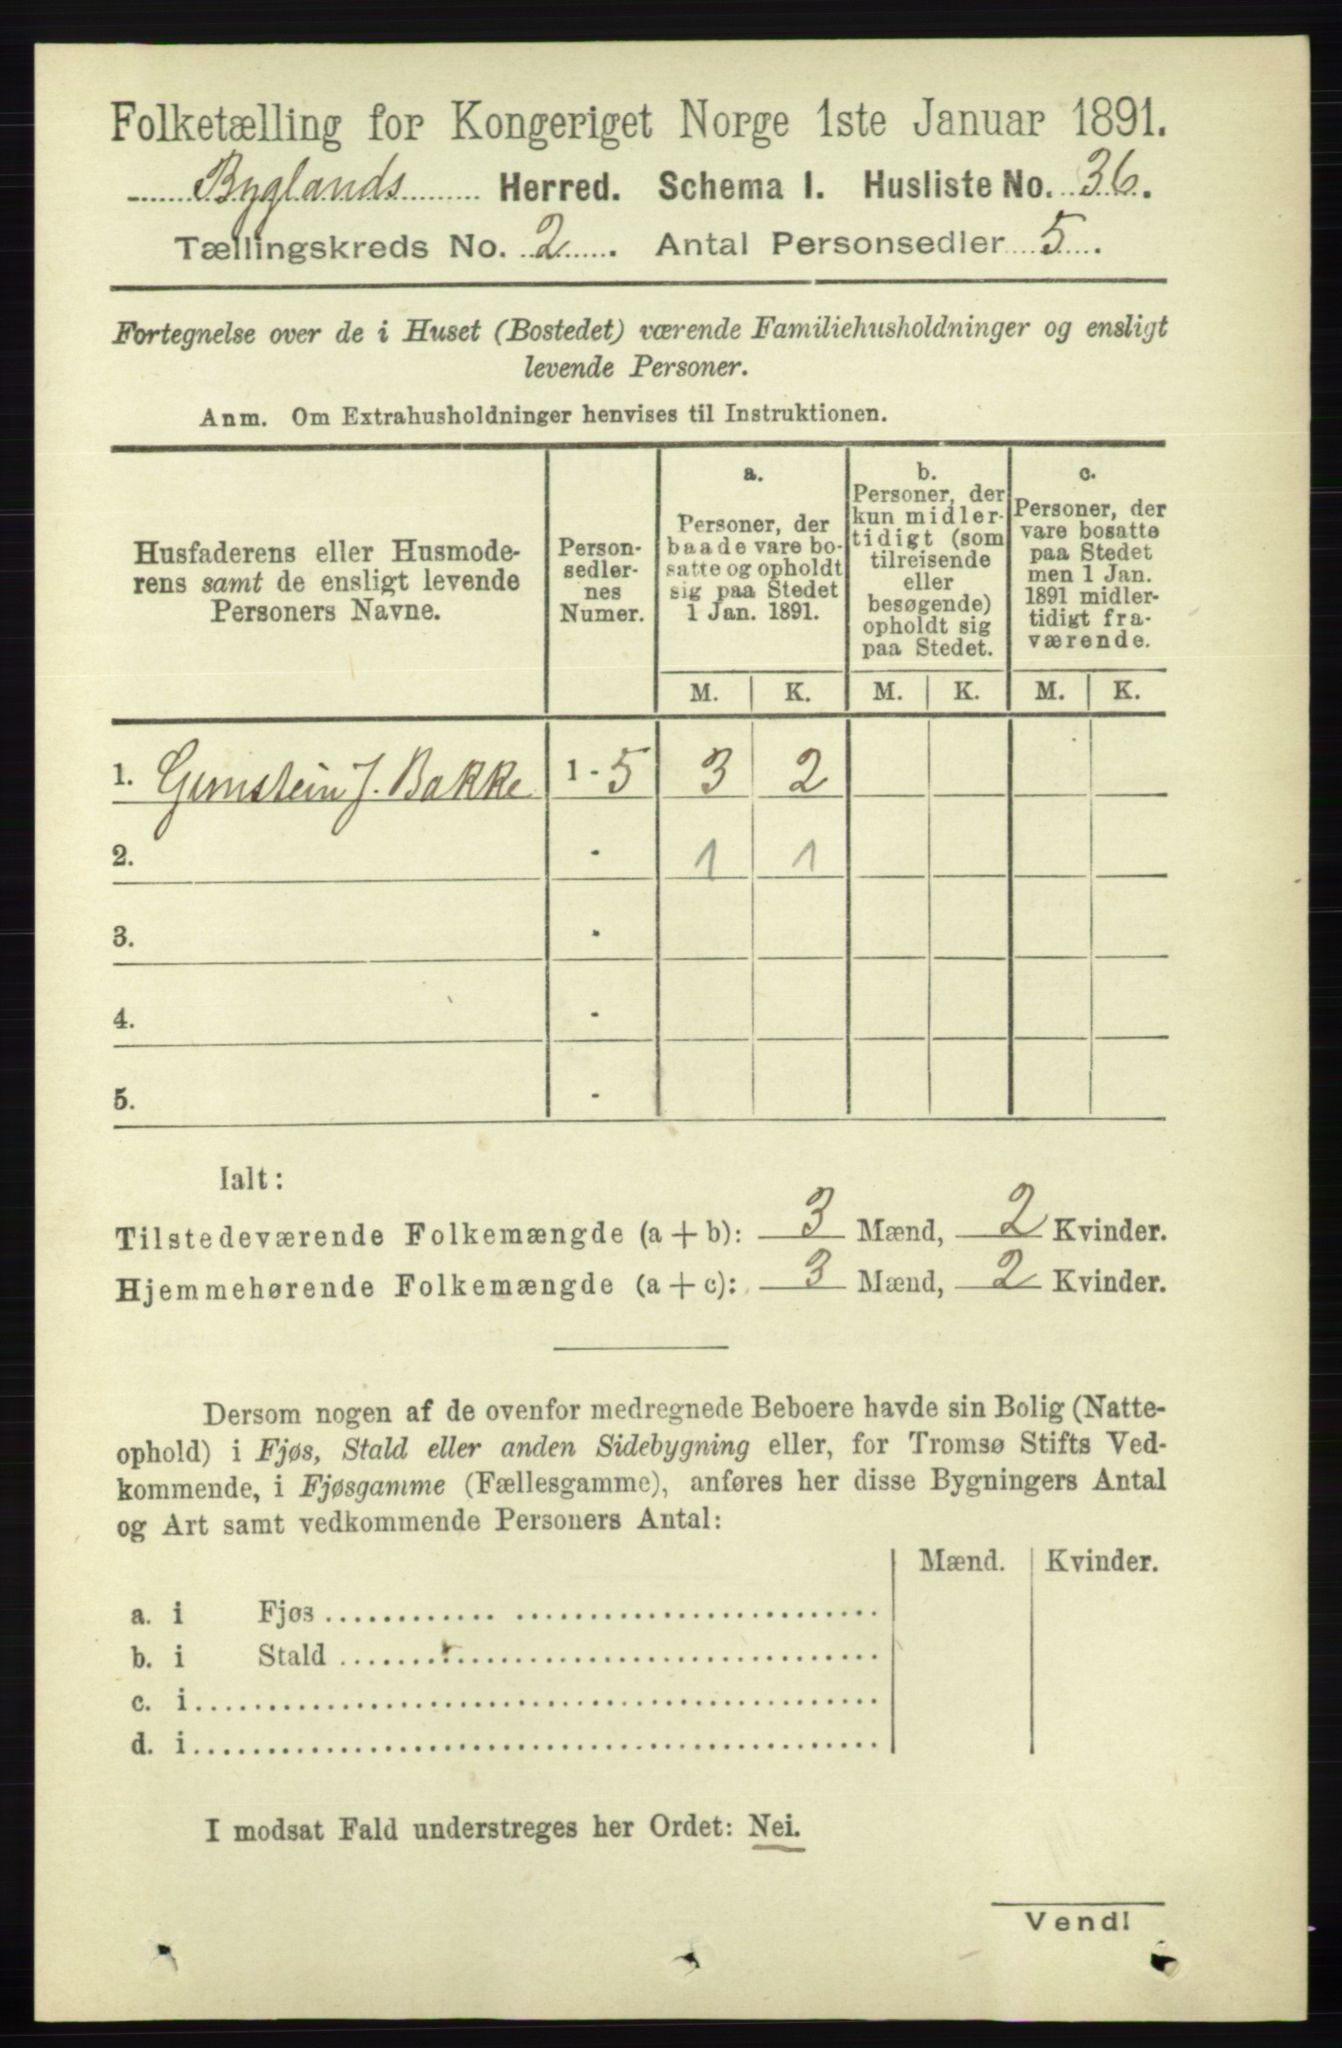 Folketælling for Kongeriget Norge 1ste Januar 1891.
Byglands Herred. Schema I. Husliste No. 36.
Tællingskreds No. 2. Antal Personsedler 5.
Fortegnelse over de i Huset (Bostedet) værende Familiehusholdninger og ensligt
levende Personer.
Anm. Om Extrahusholdninger henvises til Instruktionen.
Husfaderens eller Husmode-
rens samt de ensligt levende
Personers Navne.
Person-
sedler-
nes
Numer.
a.
Personer, der
baade vare bo-
satte og opholdt
sig paa Stedet
1 Jan. 1891.
b.
Personer, der
kun midler-
tidigt (som
tilreisende
eller
besøgende)
opholdt sig
paa Stedet.
c.
Personer, der
vare bosatte
paa Stedet
men 1 Jan.
1891 midler-
tidigt fra-
værende.
M. K. M. K. M. K.
1. Gunstein J. Bakke 1 - 5 3 2
2. - 1 1
3. -
4. -
5. -
Ialt:
Tilstedeværende Folkemængde (a + b): 3 Mænd, 2 Kvinder.
Hjemmehørende Folkemængde (a + c): 3 Mænd, 2 Kvinder.
Dersom nogen af de ovenfor medregnede Beboere havde sin Bolig (Natte-
ophold) i Fjøs, Stald eller anden Sidebygning eller, for Tromsø Stifts Ved-
kommende, i Fjøsgamme (Fællesgamme), anføres her disse Bygningers Antal
og Art samt vedkommende Personers Antal:
Mænd. Kvinder.
a. i Fjøs
b. i Stald
c. i
d. i
I modsat Fald understreges her Ordet: Nei.
Vend!